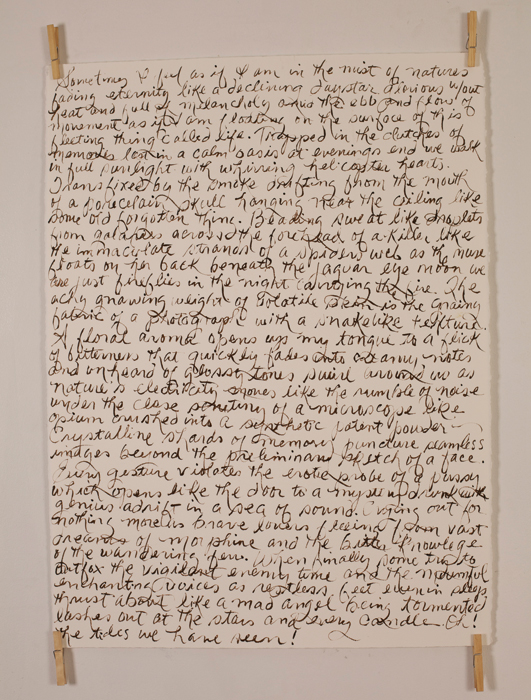 Sometimes I feel as if I am in the mist of natures
fading eternity like a declining daystar furious w/out
heat and full of melancholy as the ebb and flow of
movement as if I am floating on the surface of this
fleeting thing called life. Trapped in the clutches of
memories lost in a calm oasis at evenings end we walk
in full sunlight with whirring helicopter hearts.
Transfixed by the smoke drifting from the mouth
of a porcelain skull hanging near the ceiling like
some old forgotton thing. Beading sweat like droplets
from galaxies across the forehead of a killer like
the immaculate strands of a spiders web as the muse
floats on her back beneath the jaguar eye moon we
are just fireflies in the night carrying the fire. The
achy gnawing weight of volatile is the grainy
fabric of a photograph with a snakelike texture.
A floral aroma opens up my tongue to a flick
of bitterness that quickly fades into creamy notes
and unheard of glossy tones swirl around us as
nature's electricity like the rumble of noise
under the close scrutiny of a microscope like
opium crushed into a synthetic potent powder
Crystalline shards of memory puncture seamless
images beyond the preliminary sketch of a face.
Every gesture violates the erotic probe of a pussy
which opens like the door to a
genius adrift in a sea of sound. Crying out for
nothing more us brave lovers fleeing from vast
dreams of morphine and the bitter knowlege
of the wandering few. When finally some try to
outfox the vigilant enemy time and the
enchanting voices as restless feet even in sleep
thrust about like a mad angel being tormented
lashes out at the stars and every candle. Oh!
the tides we have seen!